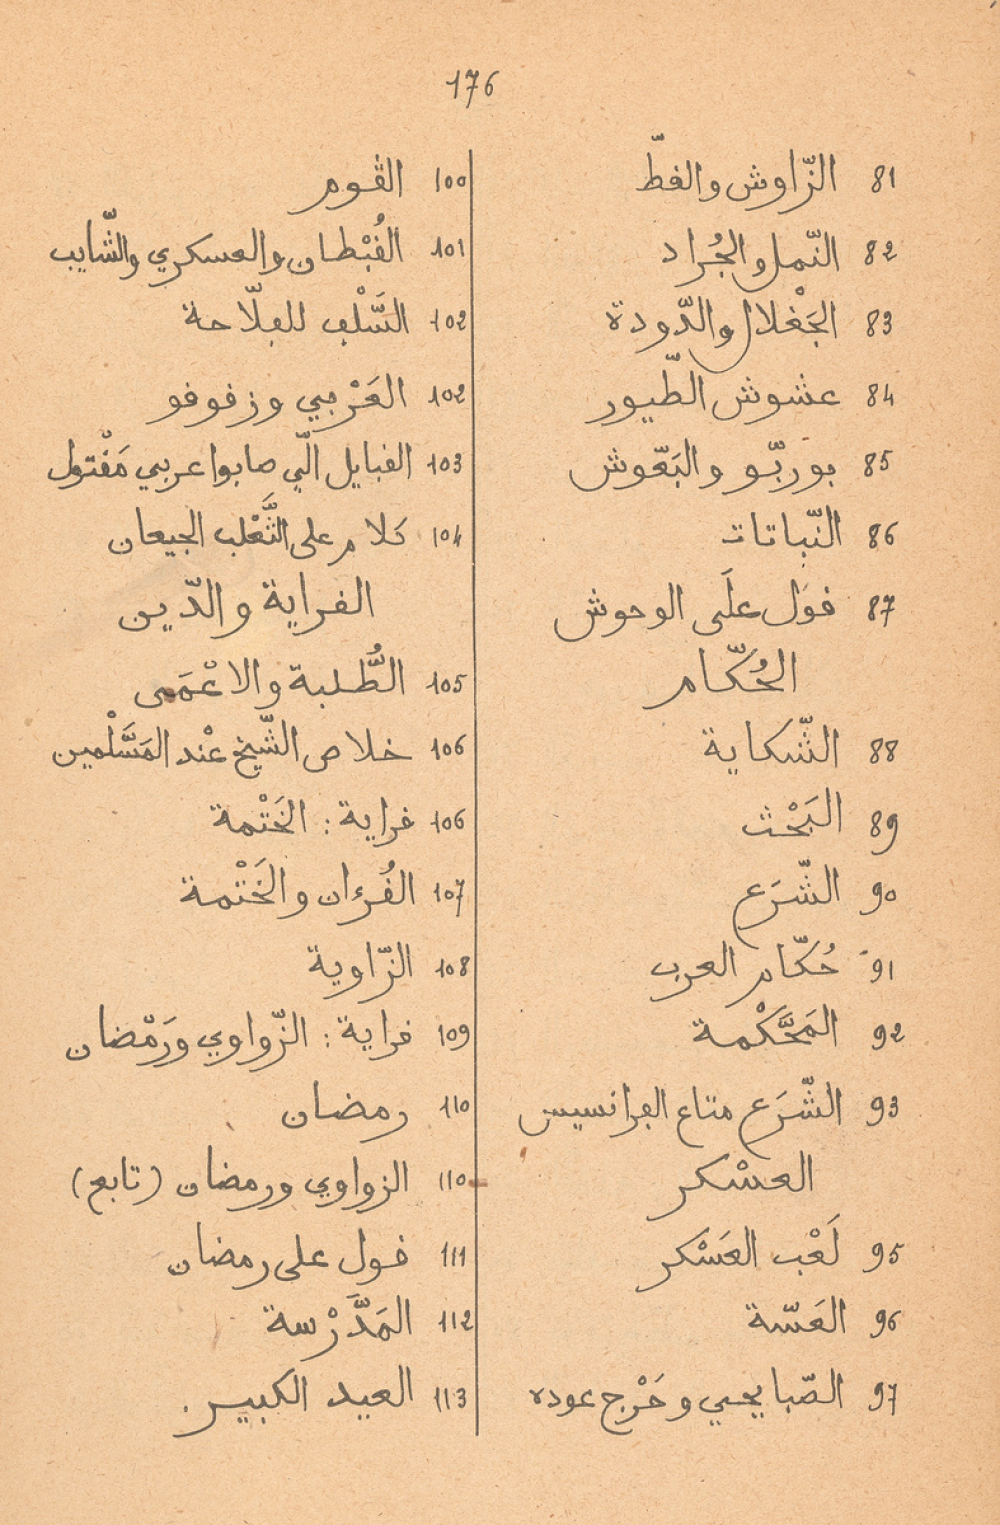 176
81 الزّاوش والقطّ
82 النّمل والجُراد
83 الجَغْلال والدّودة
84 عشوش الطّيور
85 بوربّو والبَعّوش
86 النّباتات
87 قول علَى الوحوش
الحُكّام
88 الشّكاية
89 البَحْث
90 الشّرَع
91 حُكّام العرب
92 المَحَّكْمة
93 الشّرَع متاع الفرانسيس
العسْكر
95 لَعْب العَسْكر
96 العَسّة
97 الصّبايحي وخَرْج عوده
100 القوم
101 القُبْطان والعسكري والشّايب
102 السَّلْف للفلّاحة
102 العَرْبي وزقوقو
103 القبايل الّي صابوا عربي مَقْتول
104 كلام على الثَّعْلب الجيعان
القراية والدّين
105 الطُّلبة والاعْمَى
106 خلاص الشّيخ عْند المَسَّلْمين
106 قراية : الخَتْمة
107 القُرءان والخَتْمة
108 الزّاوية
109 قراية : الزّواوي ورَمْضان
110 رمضان
110 الزواوي ورمضان (تابع)
111 قول على رمضان
112 المَدَّرْسة
113 العيد الكبير.